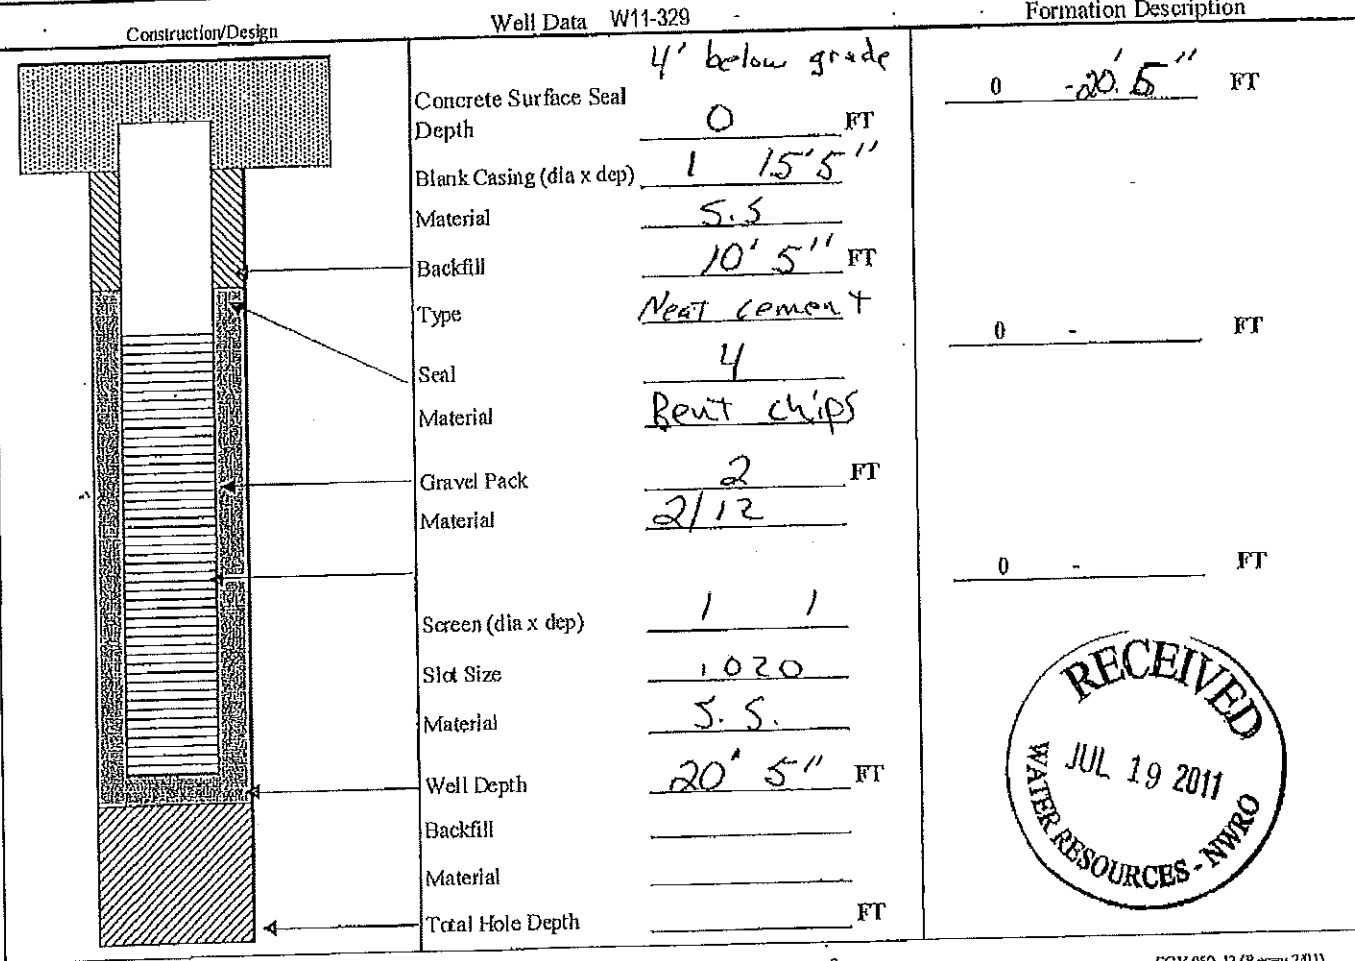 Construction/Design
Well Data W11-329
Formation Description
4' below grade
Concrete Surface Seal
Depth 0 FT
Blank Casing (dia x dep) 1 15'5"
Material S.S
Backfill 10' 5" FT
Type Neat cement
Seal 4
Material Bent chips
Gravel Pack 2 FT
Material 2/12
Screen (dia x dep) 1 1
Slot Size .020
Material S.S.
Well Depth 20' 5" FT
Backfill
Material
Total Hole Depth FT
0 -20' 5" FT
0 - FT
0 - FT
RECEIVED
JUL 19 2011
WATER RESOURCES - NWRO